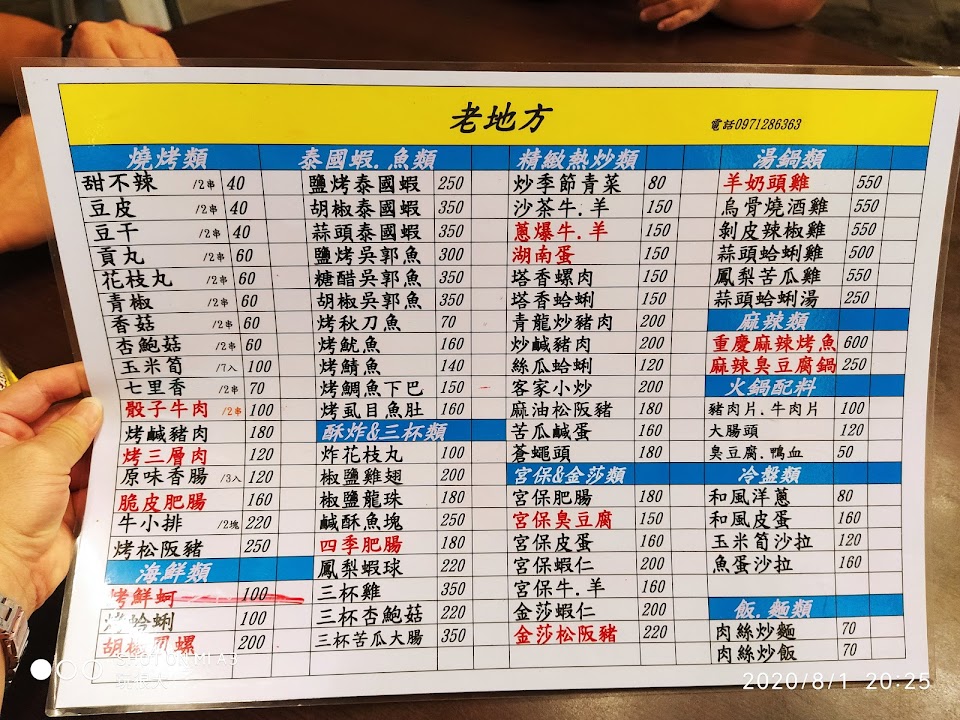 老地方
電話0971286363
燒烤類
甜不辣 /2串 40
豆皮 /2串 40
豆干 /2串 40
貢丸 /2串 60
花枝丸 /2串 60
青椒 /2串 60
香菇 /2串 60
杏鮑菇 /2串 60
玉米筍 /7入 100
七里香 /2串 70
骰子牛肉 /2串 100
烤鹹豬肉 180
烤三層肉 120
原味香腸 /3入 120
脆皮肥腸 160
牛小排 /2塊 220
烤松阪豬 250
海鮮類
烤鮮蚵 100
烤蛤蜊 100
胡椒 螺 200
泰國蝦.魚類
鹽烤泰國蝦 250
胡椒泰國蝦 350
蒜頭泰國蝦 350
鹽烤吳郭魚 300
糖醋吳郭魚 350
胡椒吳郭魚 350
烤秋刀魚 70
烤魷魚 160
烤鯖魚 140
烤鯛魚下巴 150
烤虱目魚肚 160
酥炸&三杯類
炸花枝丸 100
椒鹽雞翅 200
椒鹽龍珠 180
鹹酥魚塊 250
四季肥腸 180
鳳梨蝦球 220
三杯雞 350
三杯杏鮑菇 220
三杯苦瓜大腸 350
精緻熱炒類
炒季節青菜 80
沙茶牛.羊 150
蔥爆牛.羊 150
湖南蛋 150
塔香螺肉 150
塔香蛤蜊 150
青龍炒豬肉 200
炒鹹豬肉 200
絲瓜蛤蜊 120
客家小炒 200
麻油松阪豬 180
苦瓜鹹蛋 160
蒼蠅頭 180
宮保&金莎類
宮保肥腸 180
宮保臭豆腐 150
宮保皮蛋 160
宮保蝦仁 200
宮保牛.羊 160
金莎蝦仁 200
金莎松阪豬 220
湯鍋類
羊奶頭雞 550
烏骨燒酒雞 550
剝皮辣椒雞 550
蒜頭蛤蜊雞 500
鳳梨苦瓜雞 550
蒜頭蛤蜊湯 250
麻辣類
重慶麻辣烤魚 600
麻辣臭豆腐鍋 250
火鍋配料
豬肉片.牛肉片 100
大腸頭 120
臭豆腐.鴨血 50
冷盤類
和風洋蔥 80
和風皮蛋 160
玉米筍沙拉 120
魚蛋沙拉 160
飯.麵類
肉絲炒麵 70
肉絲炒飯 70
SHOT ON MI A3
2020/8/1 20:25